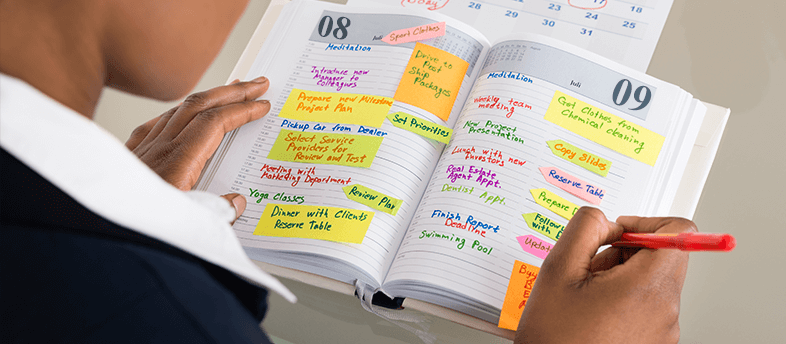 17
18
28
29
30
31
25
08
Juli
Meditation
Sport Clothes
Drive to
Post
Ship
Packages
Introduce new
Manager to
Colleagues
Prepare new Milestone
Project Plan
Set Priorities
Pickup Car from Dealer
Select Service
Providers for
Review and Test
Meeting with
Marketing Department
Yoga Classes
Review Plan
Dinner with Clients
Reserve Table
09
Juli
Meditation
Weekly team
meeting
Got Clothes from
Chemical cleaning
New Project
Presentation
Copy Slides
Lunch with new
Investors
Real Estate
Agent Appt.
Reserve Table
Dentist Appt.
Prepare
Follow
with
Finish Report
Deadline
Update
Swimming Pool